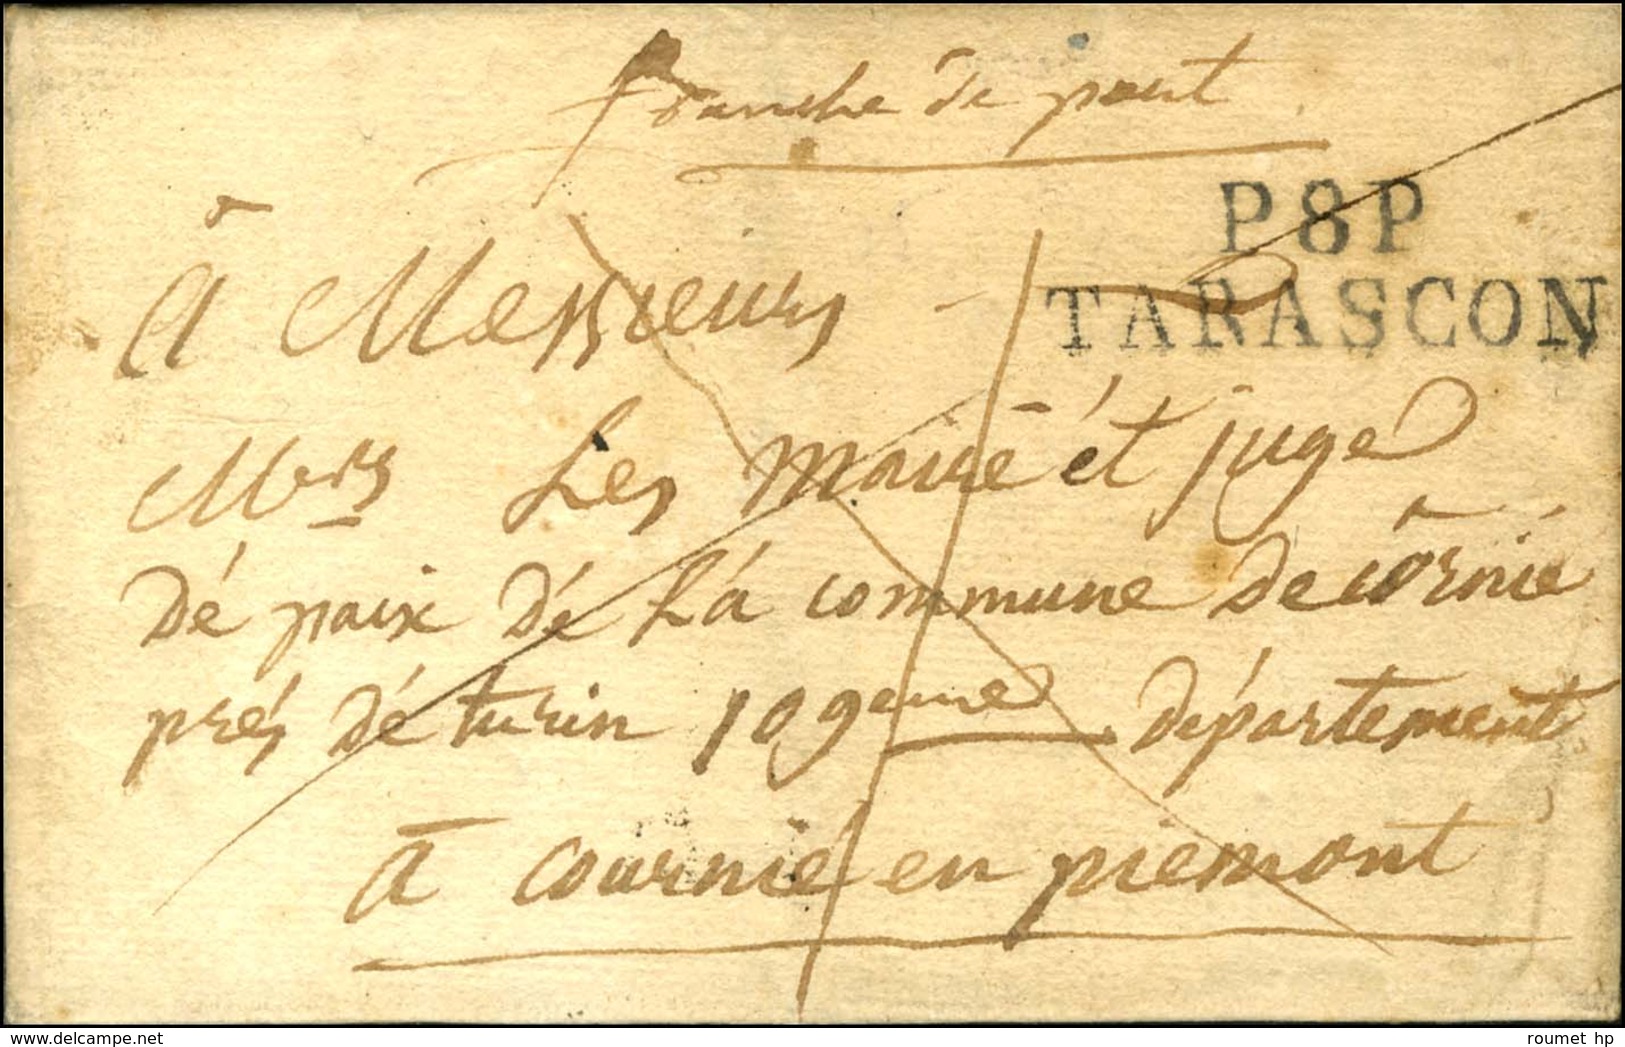 franche de port
P8P
TARASCON
à Messieurs
Mrs Les maire ét juge
dé paix dé Lá commune de cornié
prés dé turin 109eme département
à cournié en piemont
www.delcampe.net
roumet hp